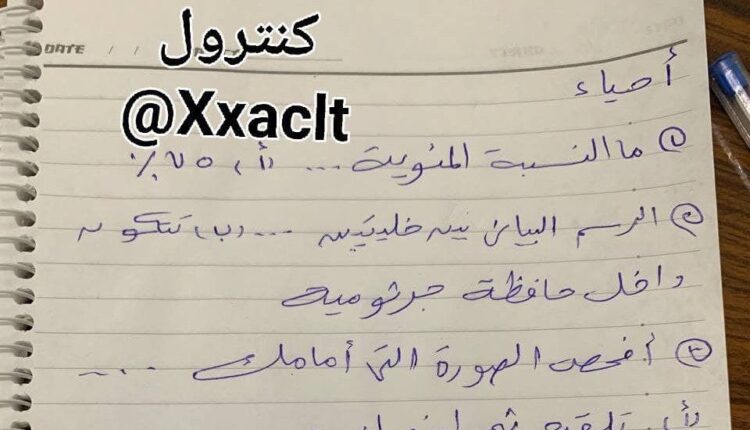 كنترول
DATE / /
@Xxaclt
أحياء
① ما النسبة المئوية ... (أ) ٧٥٪
② الرسم البياني بين خليتين ... (ب) تتكون
داخل حافظة جرثومية
③ أفحص الصورة التي أمامك ....